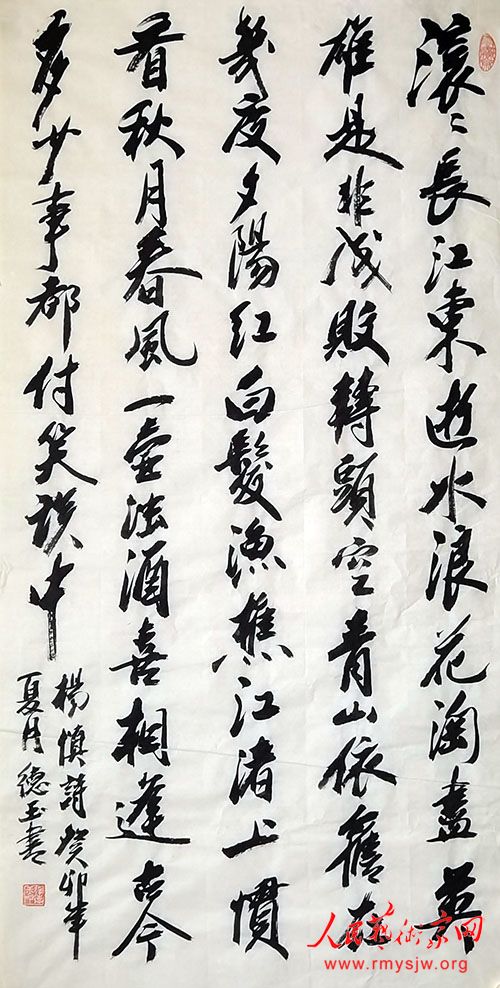 滚〻長江東逝水浪花淘盡英
雄是非成敗轉頭空青山依舊在
幾度夕陽红白髮漁樵江渚上慣
看秋月春風一壶浊酒喜相逢古今
多少事都付笑談中
楊慎詩癸卯年
夏月德玉書
人民藝術家网
www.rmysjw.org